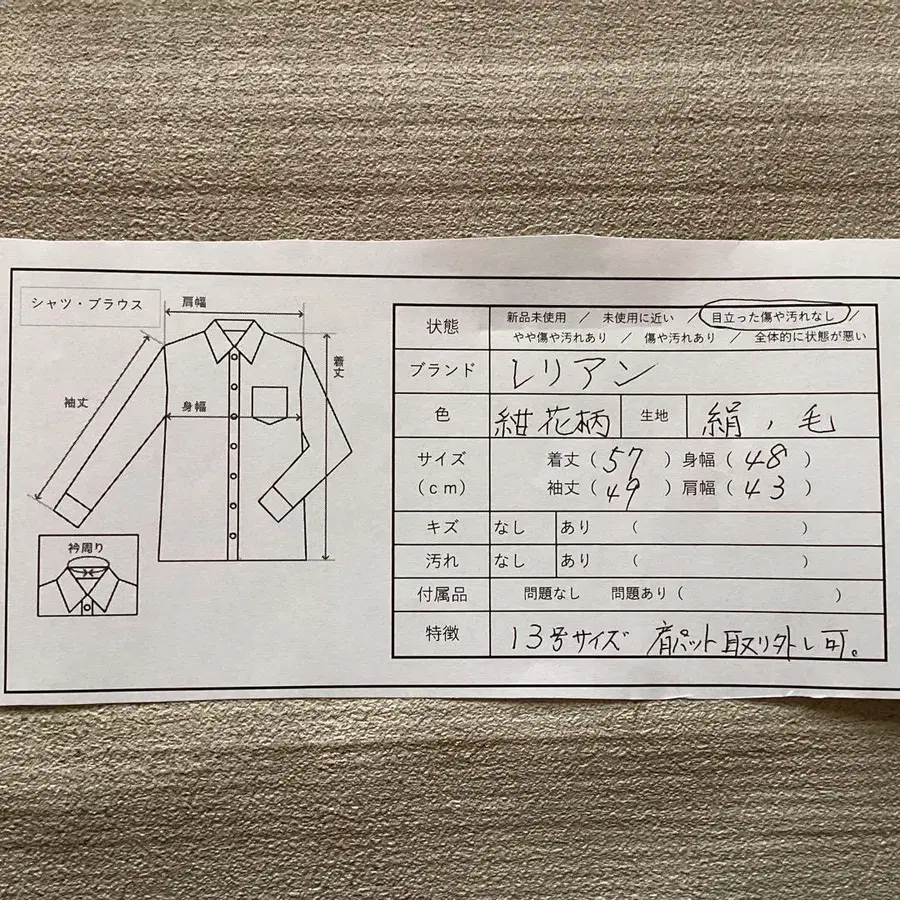 シャツ・ブラウス
肩幅
着丈
袖丈
身幅
衿周り
状態 新品未使用 / 未使用に近い / 目立った傷や汚れなし /
やや傷や汚れあり / 傷や汚れあり / 全体的に状態が悪い
ブランド レリアン
色 紺花柄 生地 絹、毛
サイズ 着丈(57)身幅(48)
(cm) 袖丈(49)肩幅(43)
キズ なし あり( )
汚れ なし あり( )
付属品 問題なし 問題あり( )
特徴 13号サイズ 肩パット取り外し可。